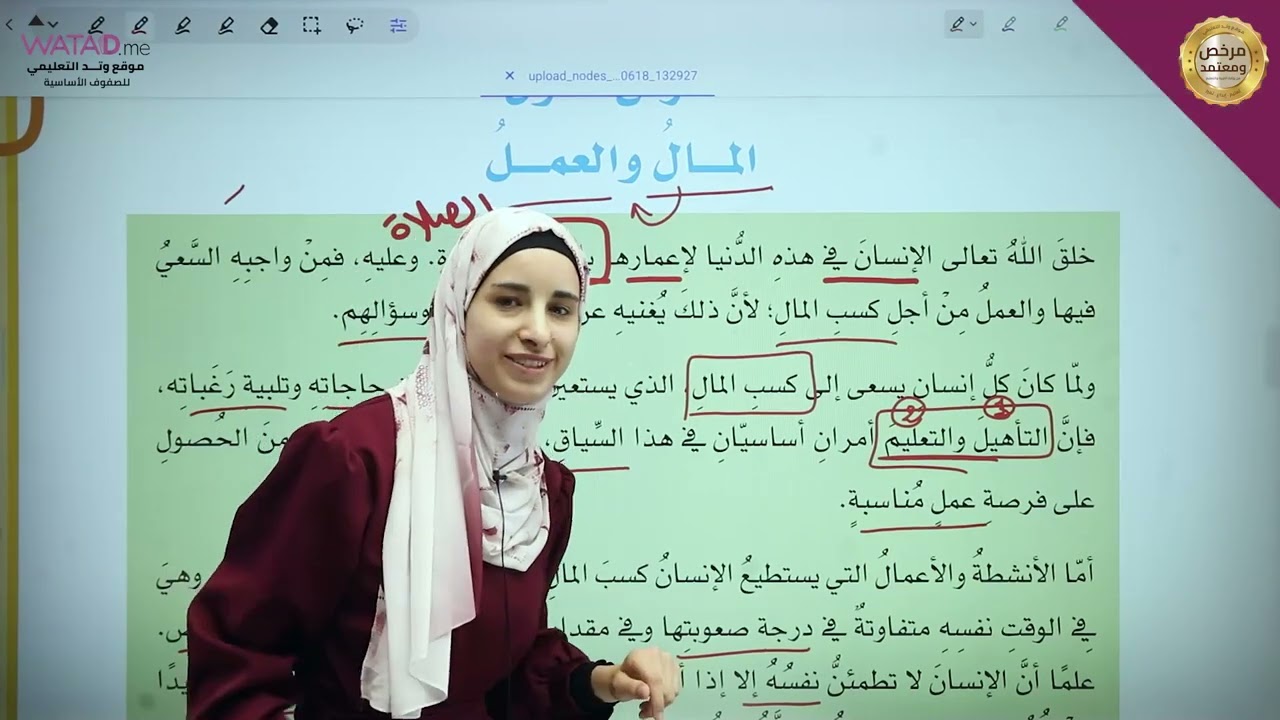 WATAD.me
موقع وتد التعليمي
للصفوف الأساسية
مرخص
ومعتمد
upload_nodes_...0618_132927
المــالُ والعمــلُ
الصلاة
خلقَ اللهُ تعالى الإنسانَ في هذهِ الدُّنيا لإعمارها وعليهِ، فمِنْ واجبِهِ السَّعيُ
فيها والعملُ مِنْ أجلِ كسبِ المالِ؛ لأنَّ ذلكَ يُغنيهِ وسؤالِهِم.
ولمّا كانَ كلُّ إنسانٍ يسعى إلى كسبِ المالِ، الذي حاجاتِهِ وتلبية رَغَباتِه،
1 2
فإنَّ التأهيلَ والتعليمَ أمرانِ أساسيّانِ في هذا السِّياقِ، الحُصولِ
على فرصةِ عملٍ مُناسبةٍ.
أمّا الأنشطةُ والأعمالُ التي يستطيعُ الإنسانُ كسبَ المالِ وهيَ
في الوقتِ نفسِهِ متفاوتةٌ في درجة صعوبتِها وفي
علمًا أنَّ الإنسانَ لا تطمئنُّ نفسُهُ إلا إذا